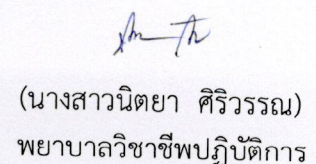 (นางสาวนิตยา ศิริวรรณ)
พยาบาลวิชาชีพปฏิบัติการ